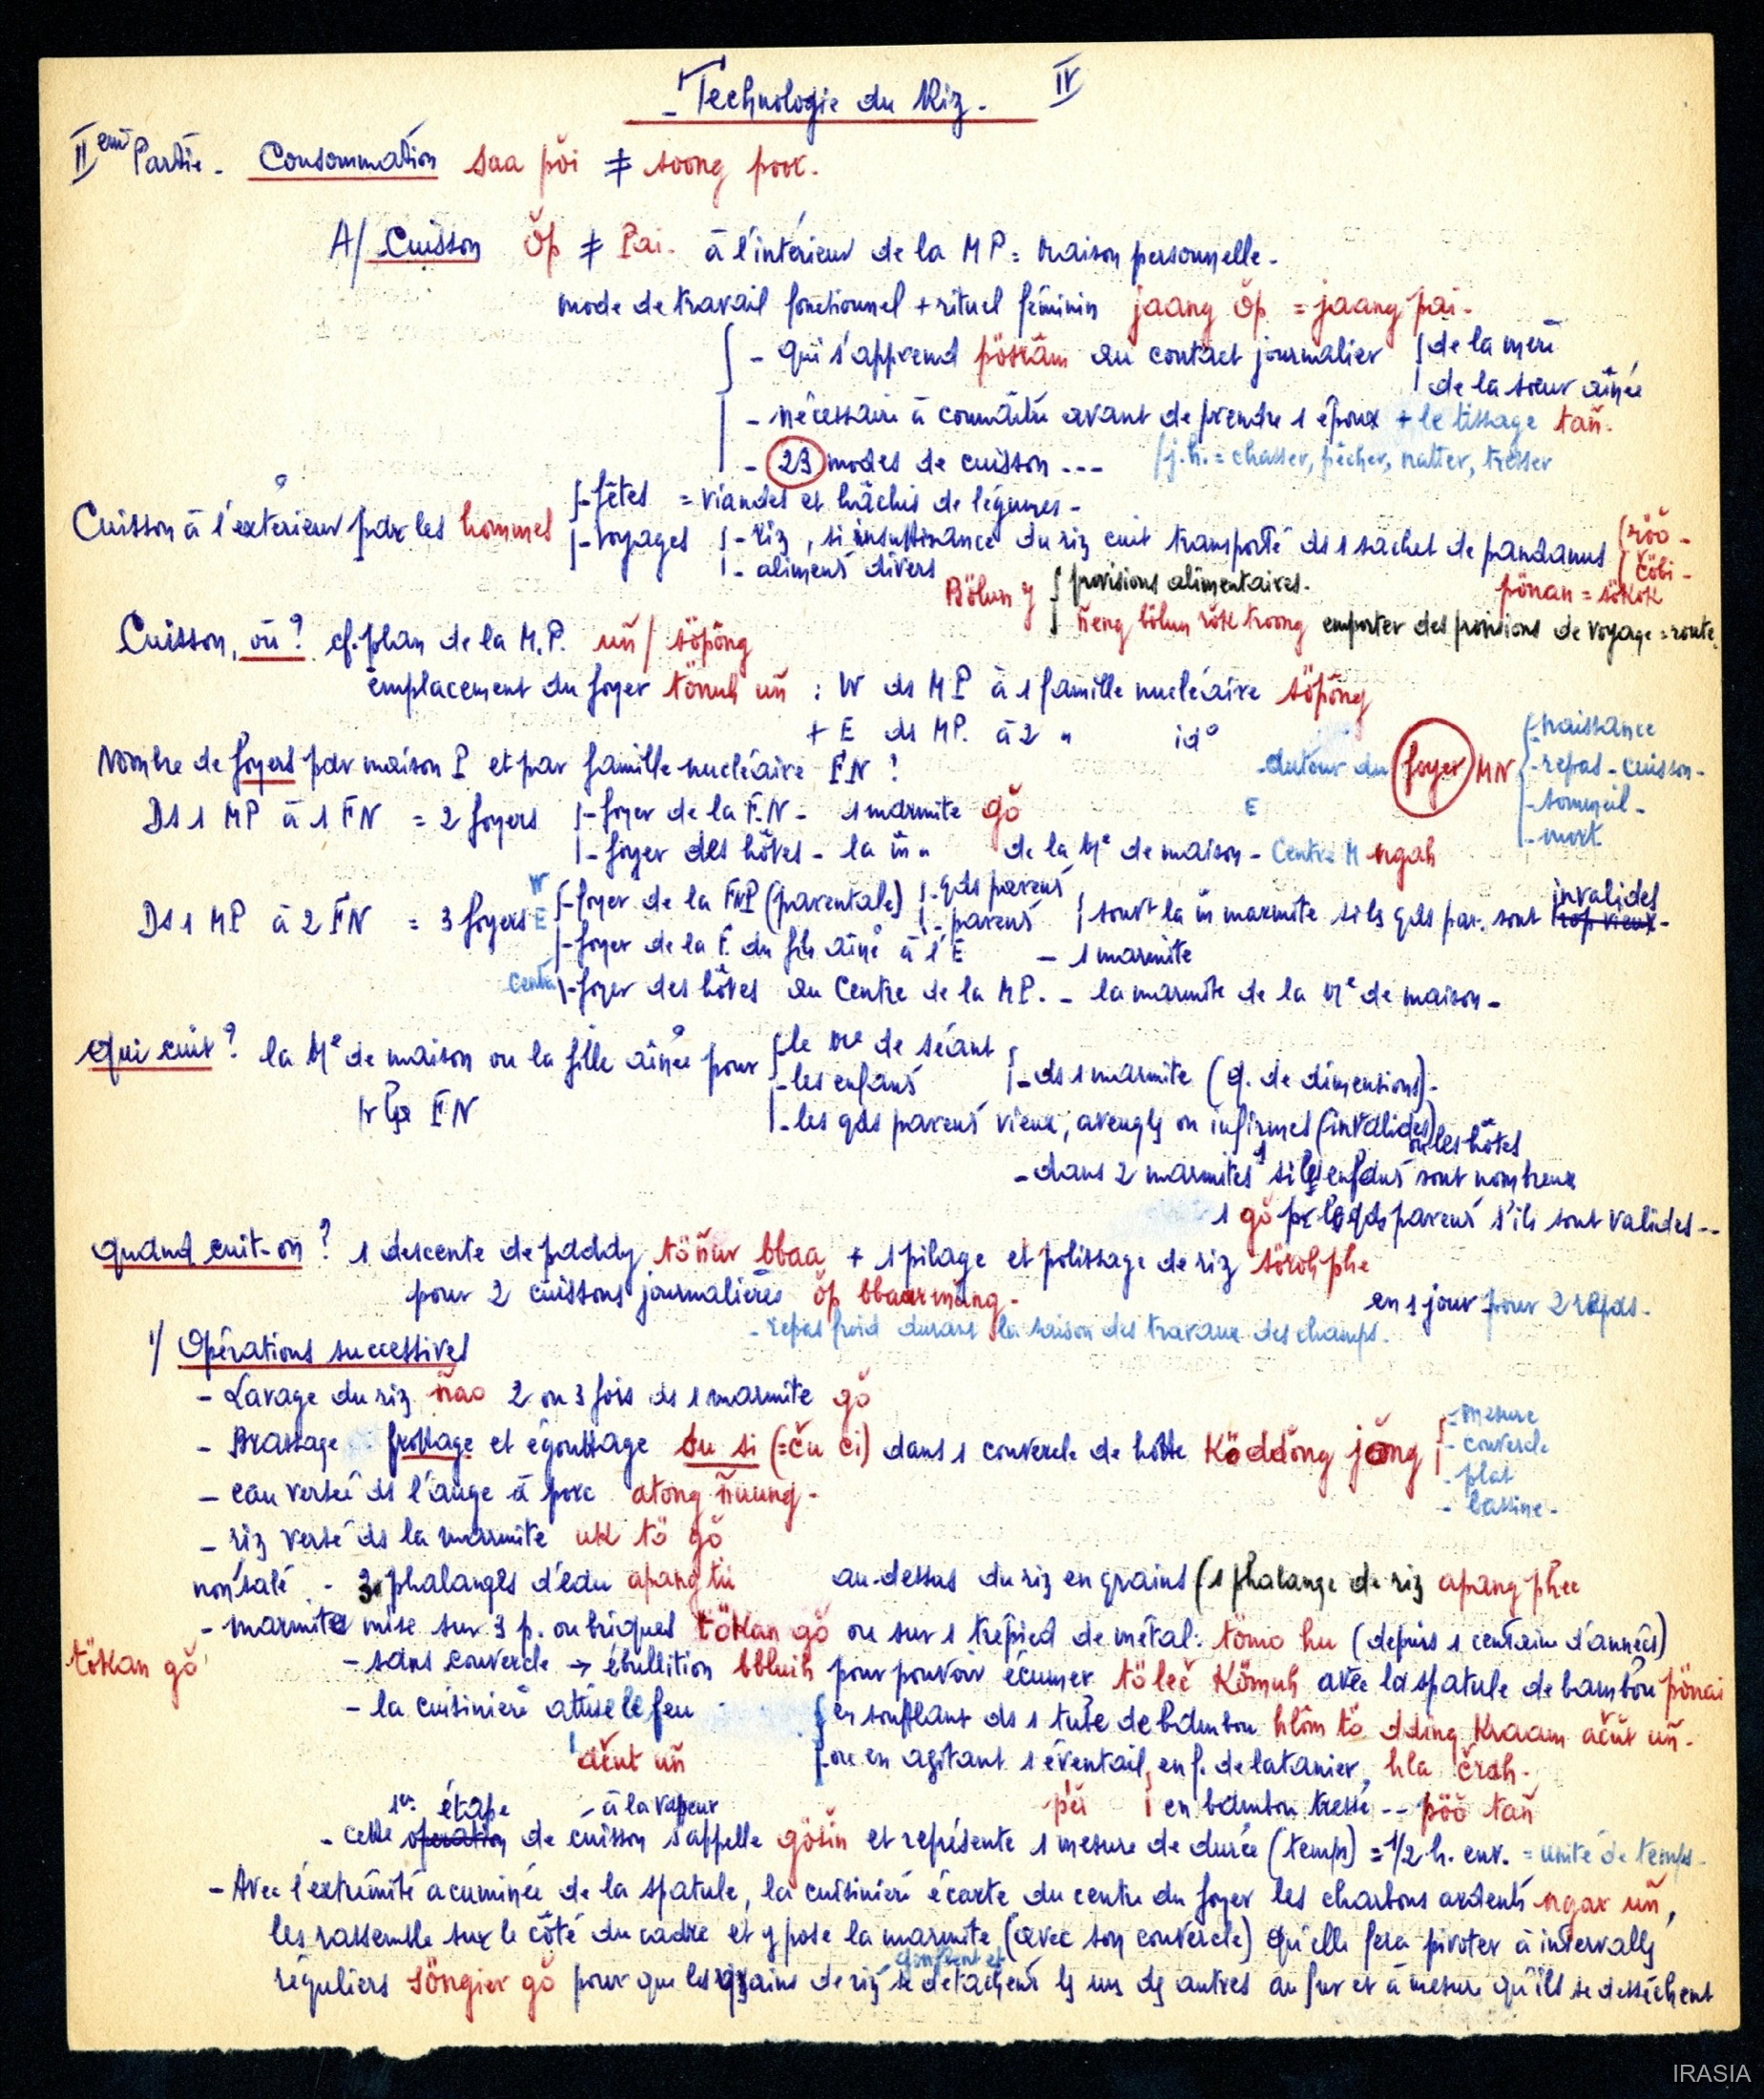 - Technologie du Riz - IV
IIème Partie - Consommation saa pŏi ≠ soong poor.
A/ Cuisson Ŏp ≠ Pai. à l'intérieur de la M P = Maison personnelle -
mode de travail fonctionnel + rituel féminin jaang ŏp = jaang pai -
- qui s'apprend pösrâm au contact journalier { de la mère
de la soeur aînée
- nécessaire à connaître avant de prendre 1 époux + le tissage tañ.
- 23 modes de cuisson --- / j.h. = chasser, pêcher, natter, tresser
Cuisson à l'extérieur par les hommes { - fêtes = viandes et hâchis de légumes -
- voyages { - riz, si insuffisance du riz cuit transporté ds 1 sachet de pandanus (röö -
- aliments divers čöbi -
Bölun y { provisions alimentaires. pönan = sökok
ñeng bölun rŏk troong emporter des provisions de voyage = route
Cuisson, où ? cf. plan de la M.P. uñ / söpŏng
emplacement du foyer tönuh uñ : W ds MP à 1 famille nucléaire söpŏng
+ E ds MP. à 2 " id°
Nombre de foyers par maison P et par famille nucléaire FN ? - autour du foyer MN { - naissance
- repas - cuisson -
- sommeil -
- mort
Ds 1 MP à 1 FN = 2 foyers { - foyer de la F.N - 1 marmite gŏ E
- foyer des hôtes - la m̄ " de la Me de maison - Centre M ngah
Ds 1 MP à 2 FN = 3 foyers W { - foyer de la FNP (parentale) { - gds parents
- parents { souvt la m̄ marmite si ls gds par. sont trop vieux invalides -
E - foyer de la F. du fils aîné à l'E - 1 marmite
Centre - foyer des hôtes au Centre de la MP. - la marmite de la Me de maison -
qui cuit ? la Me de maison ou la fille aînée pour { - le Me de séant
- les enfants { - ds 1 marmite (q. de dimensions) -
FN - les gds parents vieux, aveugls ou infirmes (invalides)
ou les hôtes
- dans 2 marmites si ls enfants sont nombreux
1 gŏ pr ls gds parents s'ils sont valides --
quand cuit-on ? 1 descente de paddy töñur bbaa + 1 pilage et polissage de riz söroh phe
pour 2 cuissons journalières ŏp bbaar măng - en 1 jour pour 2 repas.
- repas froid durant la saison des travaux des champs.
1/ Opérations successives
- Lavage du riz ñao 2 ou 3 fois ds 1 marmite gŏ
- Brassage frottage et égouttage su si (= ču ci) dans 1 couvercle de hotte Köddŏng jŏng { - mesure
- couvercle
- plat
- bassine -
- eau versée ds l'auge à porc atong ñuung -
- riz versé ds la marmite uk tö gŏ
non salé - 3 phalanges d'eau apang tii au-dessus du riz en grains (1 phalange de riz apang phee
- marmite mise sur 3 p. ou briques tökan gŏ ou sur 1 trépied de métal : tömo hu (depuis 1 centaine d'années)
tökan gŏ - sans couvercle → ébullition bbluih pour pouvoir écumer tö leč Kömuh avec la spatule de bambou pönai
- la cuisinière attise le feu { en soufflant ds 1 tube de bambou hlôm tö dding Kraam ačŭt uñ.
ačŭt uñ ou en agitant 1 éventail, en f. de latanier, hla črah -
pěi en bambou tressé -- pöö tañ
- cette opération 1re étape de cuisson - à la vapeur s'appelle gösin et représente 1 mesure de durée (temps) = 1/2 h. env. = unité de temps -
- Avec l'extrémité acuminée de la spatule, la cuisinière écarte du centre du foyer les charbons ardents ngar uñ,
les rassemble sur le côté du cadre et y pose la marmite (avec son couvercle) qu'elle fera pivoter à intervalls
réguliers söngier gŏ pour que les grains de riz gonflent et se détachent ls uns ds autres au fur et à mesure qu'ils se dessèchent
IRASIA